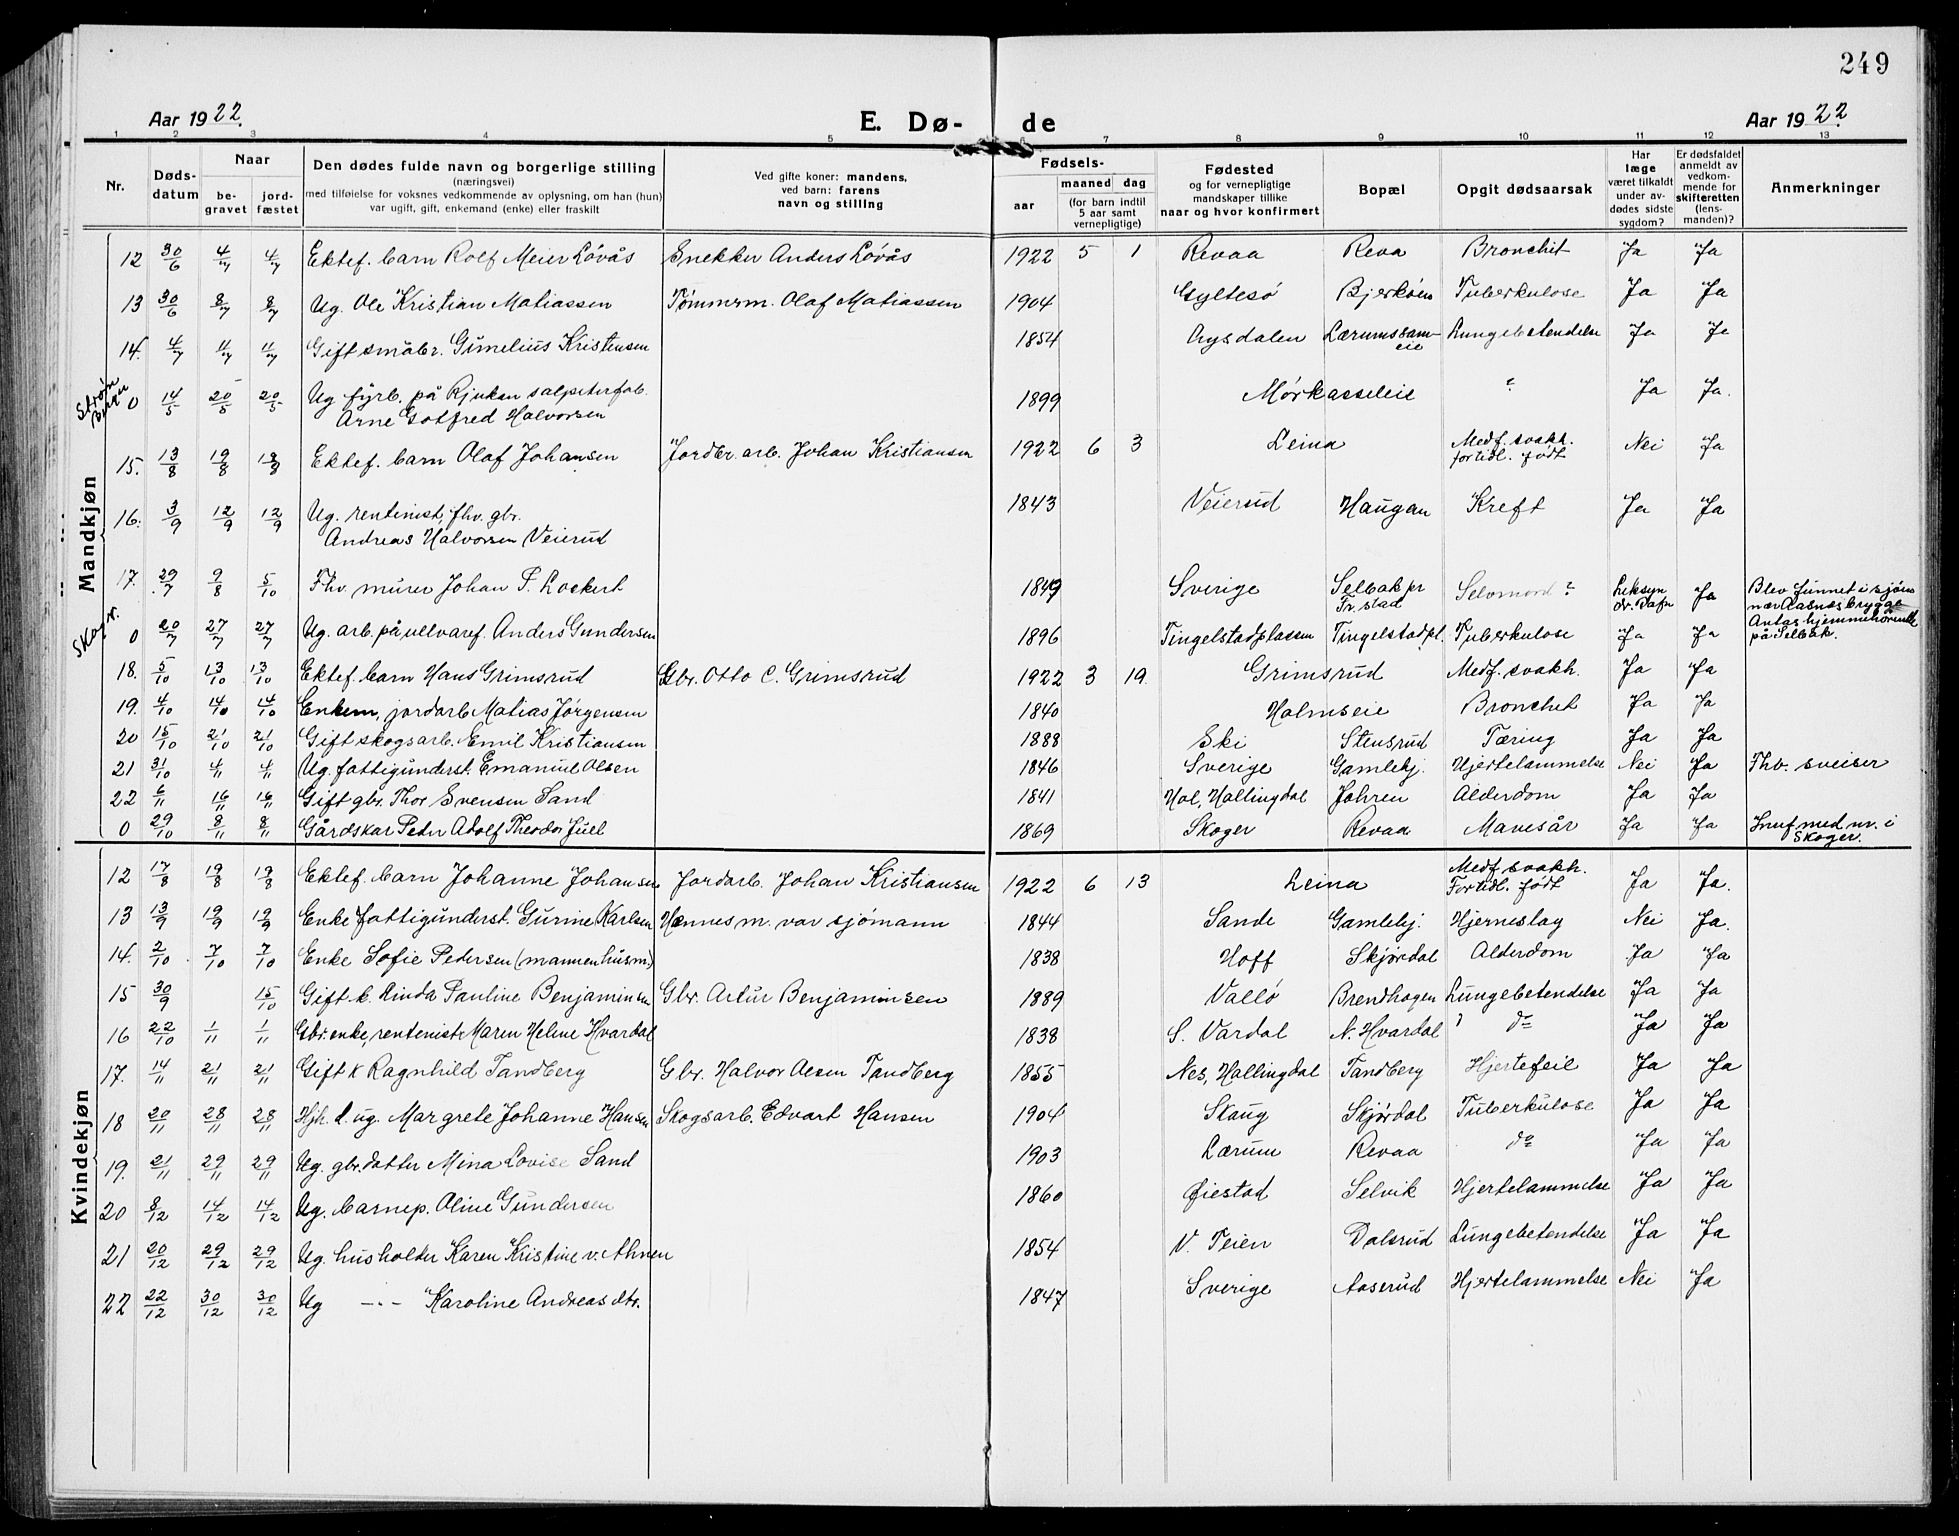 249
Aar 1922. E. Dø- de Aar 1922
1 2 3 4 5 6 7 8 9 10 11 12 13
Nr. Døds-datum Naar be-gravet jord-fæstet
Den dødes fulde navn og borgerlige stilling (næringsvei) med tilføielse for voksnes vedkommende av oplysning, om han (hun) var ugift, gift, enkemand (enke) eller fraskilt
Ved gifte koner: mandens, ved barn: farens navn og stilling
Fødsels- aar maaned dag (for barn indtil 5 aar samt vernepligtige)
Fødested og for vernepligtige mandskaper tillike naar og hvor konfirmert
Bopæl
Opgit dødsaarsak
Har læge været tilkaldt under av-dødes sidste sygdom?
Er dødsfaldet anmeldt av vedkom-mende for skifteretten (lens-manden)?
Anmerkninger
Mandkjøn
12 30/6 4/7 4/7 Ektef. barn Rolf Meier Løvås Snekker Anders Løvås 1922 5 1 Revaa Reva Bronchit Ja Ja
13 30/6 8/7 8/7 Ug. Ole Kristian Matiassen Tømmerm. Olaf Matiassen 1904 Gyltesø Bjerkøen Tuberkulose Ja Ja
14. 4/7 11/7 11/7 Gift småbr. Gunelius Kristensen 1854 Rysdalen Lærumssam-eie Lungebetendelse Ja Ja
0 14/5 20/5 20/5 Ug fyrb. på Rjukan salpeterfab. Arne Gotfred Halvorsen 1899 Mørkasseleie ? Ja Ja.
15. 13/8 19/8 19/8 Ektef. barn Olaf Johansen Jordbr. arb. Johan Kristiansen 1922 6 3 Leina Medf. svakh. fortidl. født Nei Ja
16. 3/9 12/9 12/9 Ug. rentenist, fhv. gbr. Andreas Halvorsen Veierud 1843 Veierud Haugan Kreft Ja Ja
17. 29/7 9/8 5/10 Fhv. murer Johan P. Lockert 1849 Sverige Selbak pr Fr.stad Selvmord? Ja Blev funnet i sjøen nær Aasnes brygge Antas hjemmehørende på Selbak.
Skogr. 0 20/7 27/7 27/7 Ug. arb. på ullvaref. Anders Gundersen 1896 Tingelstadplassen Tingelstadpl. Tuberkulose Ja Ja
18. 5/10 13/10 13/10 Ektef. barn Hans Grimsrud Gbr. Otto C. Grimsrud 1922 3 19 Grimsrud Medf. svakh. Ja Ja
19. 4/10 14/10 14/10 Enkem, jordarb Matias Jørgensen 1840 Holmseie Bronchit Ja Ja
20 15/10 21/10 21/10 Gift skogsarb. Emil Kristiansen 1888 Ski Stensrud Tæring Ja Ja
21 31/10 4/11 4/11 Ug. fattigunderst. Emanuel Olsen 1846 Sverige Gamlehj. Hjertelammelse Nei Ja Fhv. sveiser
22 6/11 16/11 16/11 Gift gbr. Thor Svensen Sand 1841 Hol, Hallingdal Johren Alderdom Ja Ja
0 29/10 8/11 8/11 Gårdskar Peder Adolf Theodor Juel 1869 Skoger Revaa Mavesår Ja Ja Innf med nr. i Skoger.
Kvindekjøn
12 17/8 19/8 19/8 Ektef. barn Johanne Johansen Jordarb. Johan Kristiansen 1922 6 13 Leina Medf. svakh. Fortidl. født Ja Ja.
13 13/9 19/9 19/9 Enke fattigunderst. Gurine Karlsen Hennes m. var sjømann 1844 Sande Gamlehj. Hjerneslag Nei Ja.
14. 2/10 7/10 7/10 Enke Sofie Pedersen (mannen husm.) 1838 Hoff Skjørdal Alderdom Ja Ja
15 30/9 15/10 Gift k. Linda Pauline Benjaminsen Gbr. Artur Benjaminsen 1889 Vallø Brendhagen Lungebetendelse Ja Ja
16 22/10 1/11 1/11 Gbr.enke, rentenist Maren Helene Hvardal 1838 S. Vardal N. Hvardal ? do Ja Ja
17. 14/11 21/11 21/11 Gift k Ragnhild Tandberg Gbr. Halvor Aesen Tandberg 1855 Nes, Hallingdal Tandberg Hjertefeil Ja Ja
18 20/11 28/11 28/11 Hjh. d. ug. Margrete Johanne Hansen Skogsarb. Edvart Hansen 1904 Skaug Skjørdal Tuberkulose Ja Ja
19. 21/11 29/11 29/11 Ug. gbr.datter Mina Lovise Sand 1903 Lærum Revaa do Ja Ja
20 8/12 14/12 14/12 Ug. barnep. Oline Gundersen 1860 Øiestad Selvik Hjertelammelse Ja Ja
21 20/12 29/12 29/12 Ug. husholder Karen Kristine v. Ahnen 1854 V. Teien Dalsrud Lungebetendelse Ja Ja
22 22/12 30/12 30/12 Ug —"— Karoline Andreasdtr. 1847 Sverige Aaserud Hjertelammelse Nei Ja